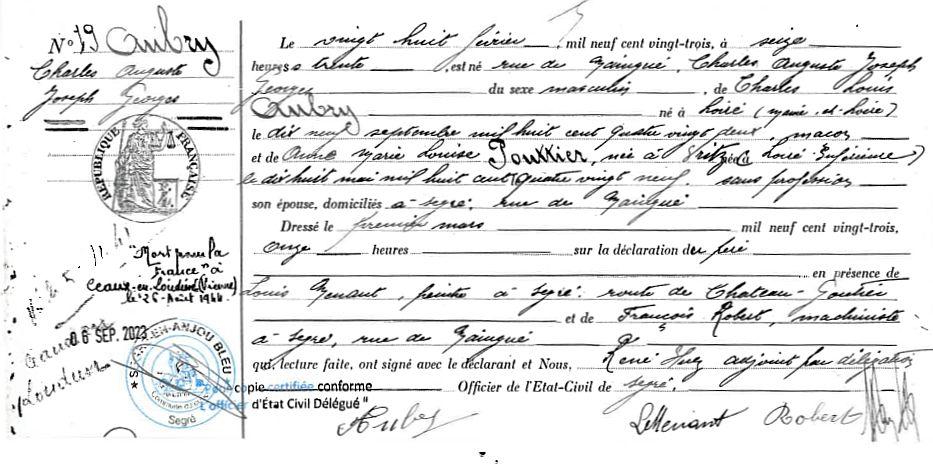 N° 19 Aubry
Charles Auguste
Joseph Georges
RÉPUBLIQUE FRANÇAISE
"Mort pour la
France" à
Ceaux-en-Loudun (Vienne)
le 25 Août 1944
06 SEP. 2023
SEGRÉ-EN-ANJOU BLEU
Segré
Loudun
Le vingt huit février, mil neuf cent vingt-trois, à seize
heures trente est né rue de, Charles Auguste Joseph
Georges du sexe masculin, de Charles Louis
Aubry né à Loiré (Maine-et-Loire)
le dix neuf septembre mil huit cent quatre vingt deux, maçon
et de Anne Marie Louise, née à Vritz (Loire Inférieure)
le dix huit mai mil huit cent quatre vingt neuf, sans profession
son épouse, domiciliés à Segré, rue de
Dressé le premier mars mil neuf cent vingt-trois,
onze heures sur la déclaration du père
en présence de
Louis, peintre à Segré, route de Chateau-Gontier
et de François Robert, machiniste
à Segré, rue de
qui, lecture faite, ont signé avec le déclarant et Nous, René adjoint par délégation
Officier de l'Etat-Civil de Segré.
copie certifiée conforme
L'officier d'État Civil Délégué"
Aubry Robert